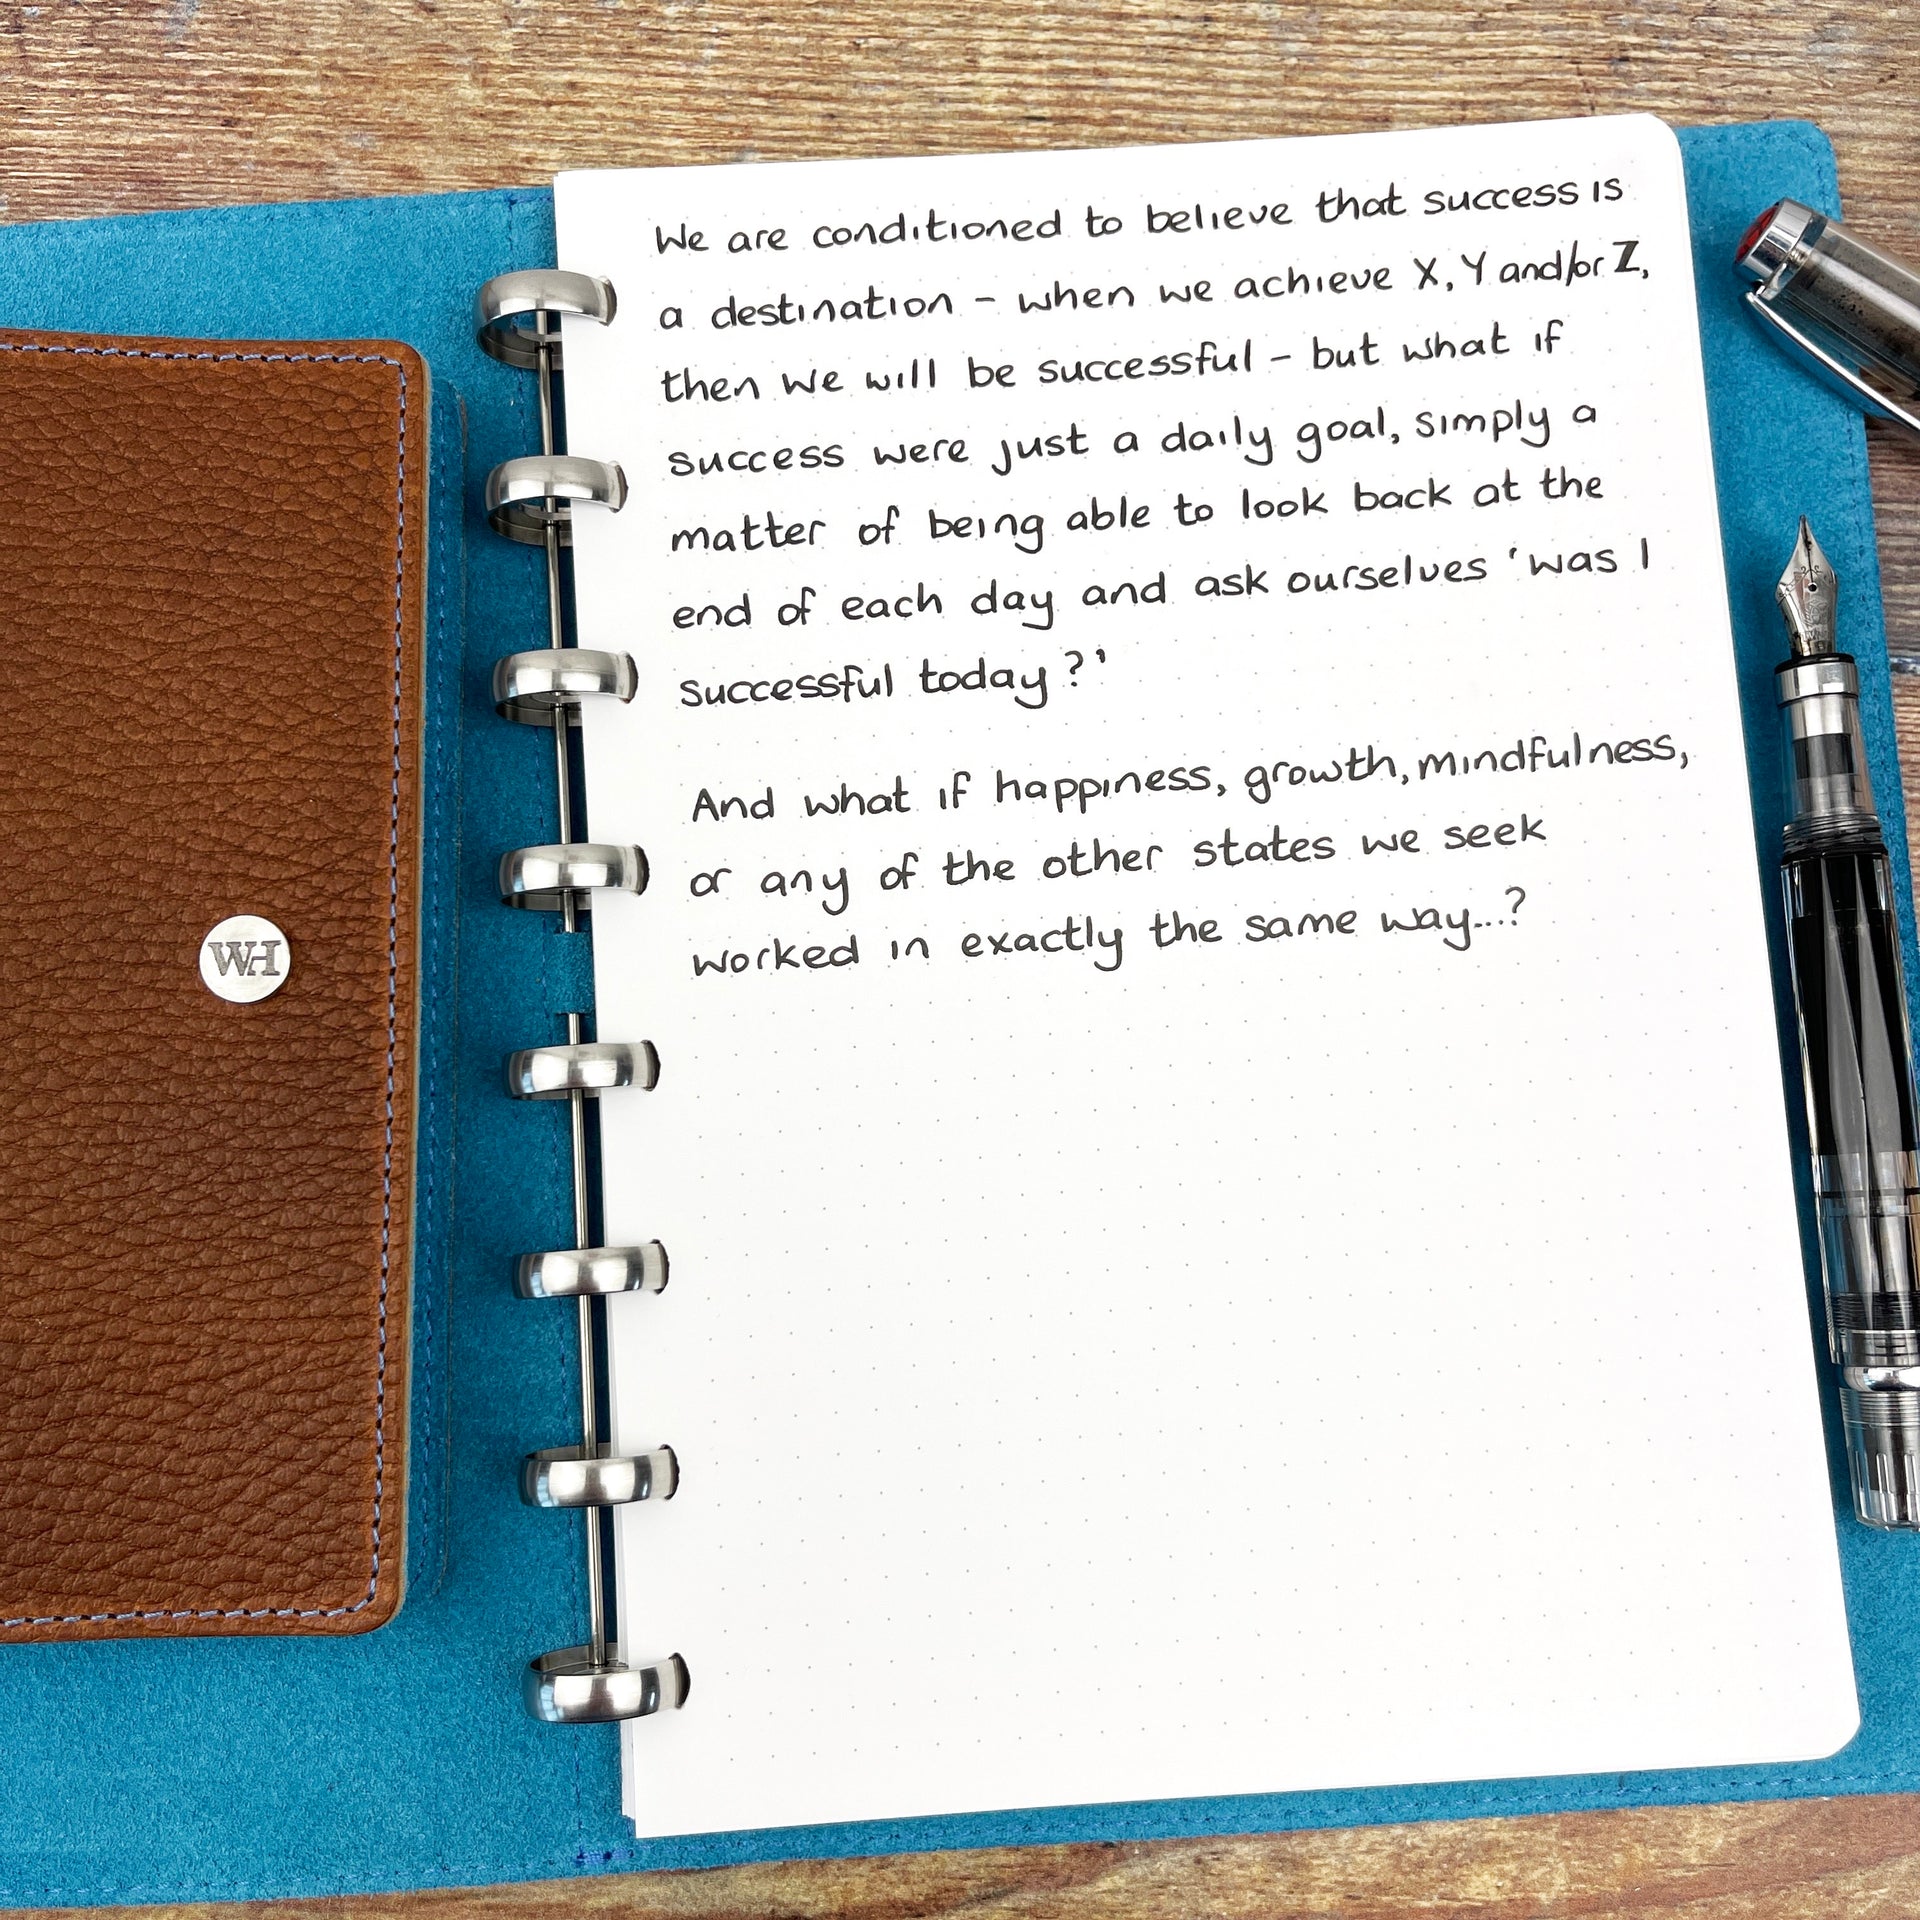 We are conditioned to believe that success is
a destination - when we achieve X, Y and/or Z,
then we will be successful - but what if
success were just a daily goal, simply a
matter of being able to look back at the
end of each day and ask ourselves 'was I
successful today?'
And what if happiness, growth, mindfulness,
or any of the other states we seek
worked in exactly the same way...?
WH